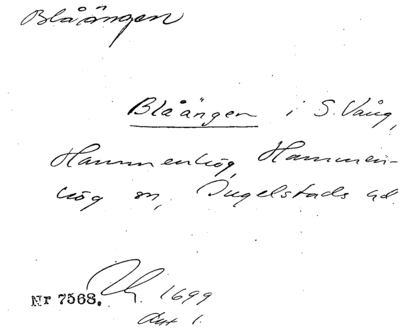 Blåängen
Blåängen i S. Vång,
Hammenhög, Hammen-
hög sn, Ingelstads hd
Nr 7568. 1699